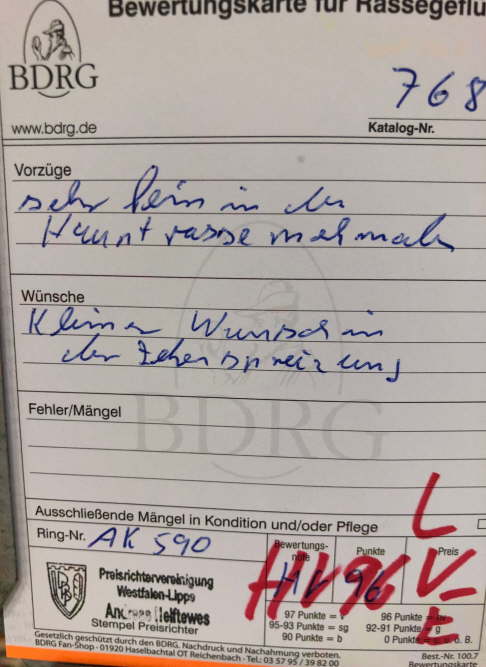 Bewertungskarte für Rassegeflü
BDRG
768
www.bdrg.de
Katalog-Nr.
Vorzüge
sehr fein in den
Haupt rassemerkmalen
Wünsche
Kleiner Wunsch in
der Zehenspreizung
BDRG
Fehler/Mängel
Ausschließende Mängel in Kondition und/oder Pflege
L
Ring-Nr. AK 590
Bewertungs-
note
Punkte
Preis
HV 96
HV 96 V
E
Preisrichtervereinigung
Westfalen-Lippe
Helftewes
Stempel Preisrichter
97 Punkte =
96 Punkte = hv
95-93 Punkte = sg
92-91 Punkte = g
90 Punkte = b
0 Punkte
Gesetzlich geschützt durch den BDRG. Nachdruck und Nachahmung verboten.
BDRG Fan-Shop · 01920 Haselbachtal OT Reichenbach · Tel.: 03 57 95 / 39 82 00
Best.-Nr. 100.7
Bewertungskarte